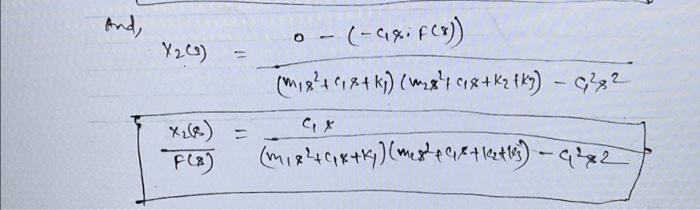 And,
X₂(s) = 0 - (-c₁s · F(s)) / (m₁s² + c₁s + k₁) (m₂s² + c₁s + k₂ + k₃) - c₁²s²
X₂(s) / F(s) = c₁s / (m₁s² + c₁s + k₁) (m₂s² + c₁s + k₂ + k₃) - c₁²s²